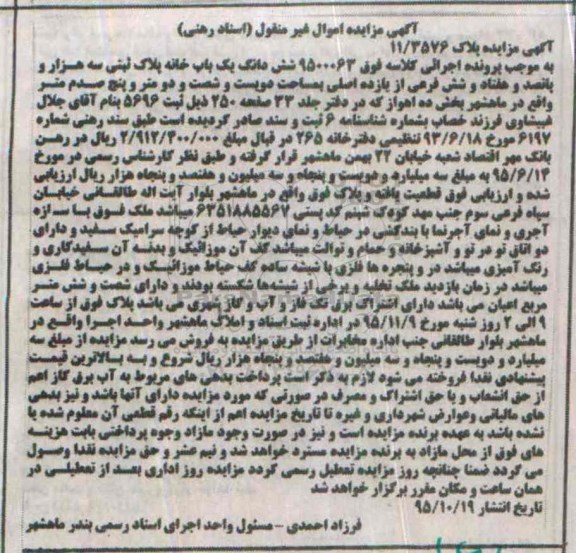 آگهی مزایده اموال غیر منقول (اسناد رهنی)
آگهی مزایده پلاک ۱۱/۳۵۷۶
به موجب پرونده اجرائی کلاسه فوق ۹۵۰۰۰۶۳ شش دانگ یک باب خانه پلاک ثبتی سه هزار و
پانصد و هفتاد و شش فرعی از یازده اصلی بمساحت دویست و شصت و دو متر و پنج صدم متر
واقع در ماهشهر بخش ده اهواز که در دفتر جلد ۳۳ صفحه ۲۵۰ ذیل ثبت ۵۶۹۶ بنام آقای جلال
غبیشاوی فرزند خصاب بشماره شناسنامه ۶ ثبت و سند صادر گردیده است طبق سند رهنی شماره
۶۱۹۷ مورخ ۹۳/۶/۱۸ تنظیمی دفترخانه ۲۶۵ در قبال مبلغ ۲/۹۱۲/۴۰۰/۰۰۰ ریال در رهن
بانک مهر اقتصاد شعبه خیابان ۲۲ بهمن ماهشهر قرار گرفته و طبق نظر کارشناس رسمی در مورخ
۹۵/۶/۱۴ به مبلغ سه میلیارد و دویست و پنجاه و سه میلیون و هفتصد و پنجاه هزار ریال ارزیابی
شده و ارزیابی فوق قطعیت یافته و پلاک فوق واقع در ماهشهر بلوار آیت اله طالقانی خیابان
سپاه فرعی سوم جنب مهد کودک شبنم کد پستی ۶۳۵۱۸۸۵۵۶۷ میباشد ملک فوق با سازه
آجری و نمای آجرنما با بندکشی در حیاط و نمای دیوار حیاط از کوچه سرامیک سفید و دارای
دو اتاق تو در تو و آشپزخانه و حمام و توالت میباشد کف آن موزائیک و بدنه آن سفیدکاری و
رنگ آمیزی میباشد در و پنجره ها فلزی با شیشه ساده کف حیاط موزائیک و در حیاط فلزی
میباشد در زمان بازدید ملک تخلیه و برخی از شیشه‌ها شکسته بودند و دارای شصت و شش متر
مربع اعیان می باشد دارای اشتراک برق تک فاز و آب و گاز شهری می باشد پلاک فوق از ساعت
۹ الی ۲ روز شنبه مورخ ۹۵/۱۱/۹ در اداره ثبت اسناد و املاک ماهشهر واحد اجرا واقع در
ماهشهر بلوار طالقانی جنب اداره مخابرات از طریق مزایده به فروش می رسد مزایده از مبلغ سه
میلیارد و دویست و پنجاه و سه میلیون و هفتصد و پنجاه هزار ریال شروع و به بالاترین قیمت
پیشنهادی نقدا فروخته می شود لازم به ذکر است پرداخت بدهی های مربوط به آب برق گاز اعم
از حق انشعاب و یا حق اشتراک و مصرف در صورتی که مورد مزایده دارای آنها باشد و نیز بدهی
های مالیاتی وعوارض شهرداری و غیره تا تاریخ مزایده اعم از اینکه رقم قطعی آن معلوم شده یا
نشده باشد به عهده برنده مزایده است و نیز در صورت وجود مازاد وجوه پرداختی بابت هزینه
های فوق از محل مازاد به برنده مزایده مسترد خواهد شد و نیم عشر و حق مزایده نقدا وصول
می گردد ضمنا چنانچه روز مزایده تعطیل رسمی گردد مزایده روز اداری بعد از تعطیلی در
همان ساعت و مکان مقرر برگزار خواهد شد
تاریخ انتشار ۹۵/۱۰/۱۹
فرزاد احمدی - مسئول واحد اجرای اسناد رسمی بندر ماهشهر